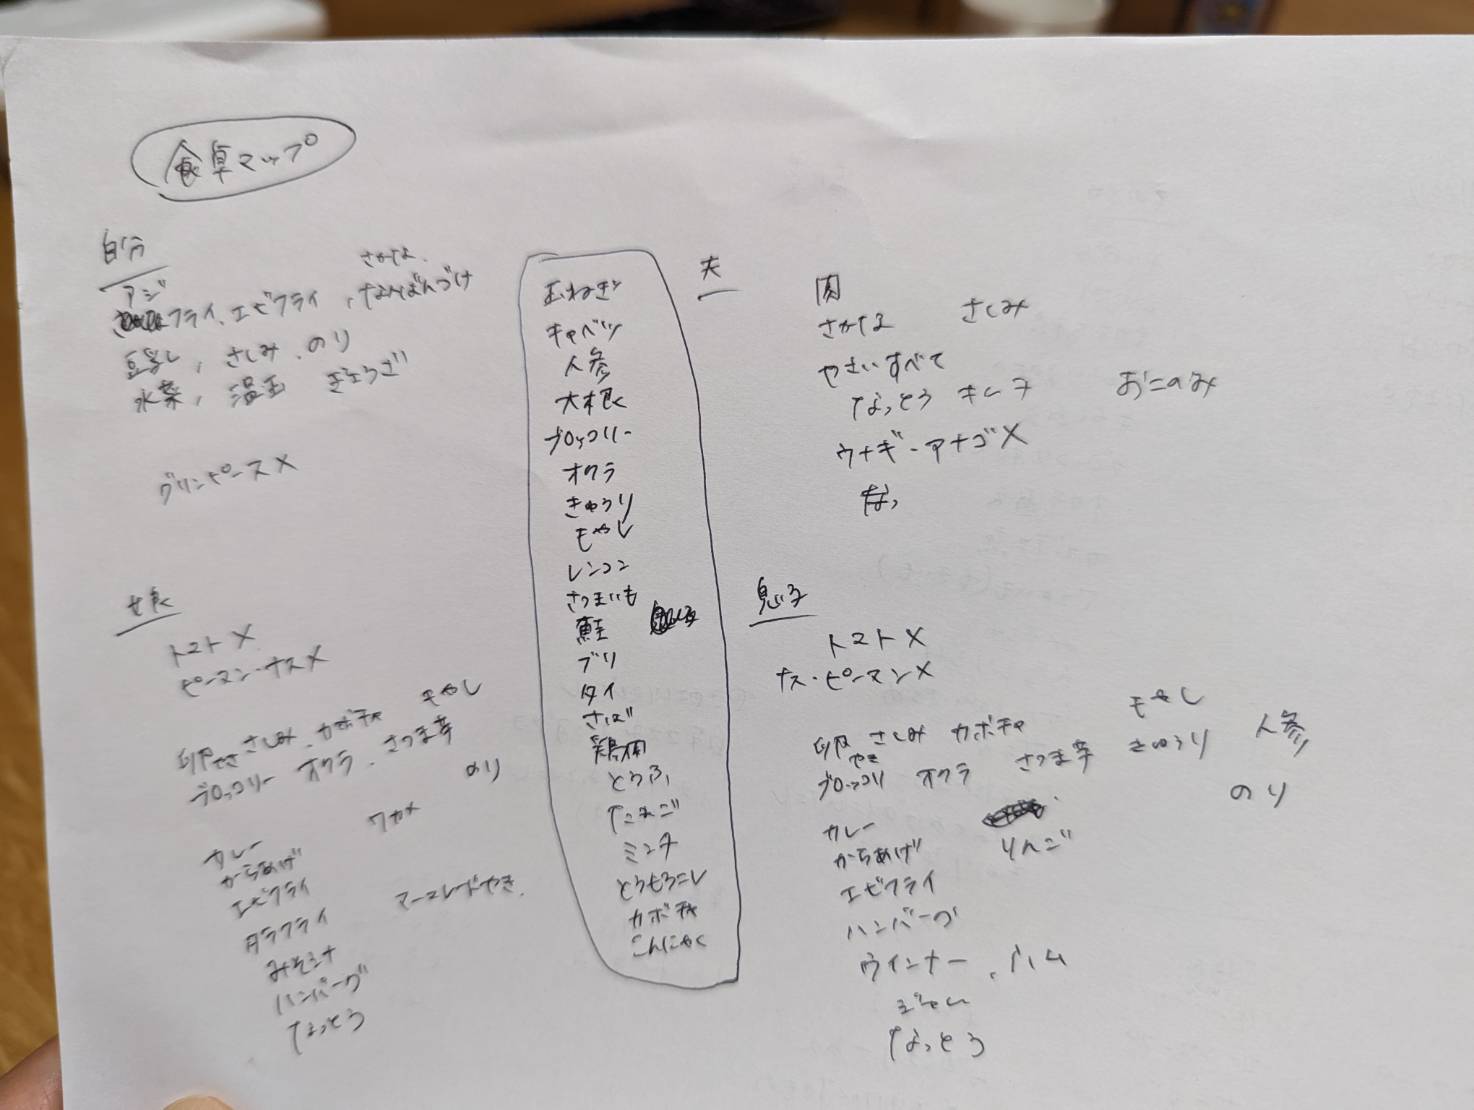 食卓マップ
自分
さかな
アジ
フライ、エビフライ、なんばんづけ
豆乳、さしみ、のり
水菜、温玉 ぎょうざ
グリンピース×
玉ねぎ
キャベツ
人参
大根
ブロッコリー
オクラ
きゅうり
もやし
レンコン
さつまいも
鮭
ブリ
タイ
さば
鶏肉
とうふ
たまご
ミンチ
とうもろこし
カボチャ
こんにゃく
夫
肉
さかな さしみ
やさいすべて
なっとう キムチ おこのみ
ウナギ・アナゴ×
娘
トマト×
ピーマン・ナス×
もやし
卵やき さしみ、カボチャ
ブロッコリー オクラ、さつま芋
のり
ワカメ
カレー
からあげ
エビフライ
タラフライ マーマレードやき
みそ
ハンバーグ
なっとう
息子
トマト×
ナス・ピーマン×
もやし
卵やき さしみ カボチャ
ブロッコリ オクラ さつま芋 きゅうり 人参
のり
カレー
からあげ りんご
エビフライ
ハンバーグ
ウインナー、ハム
なっとう